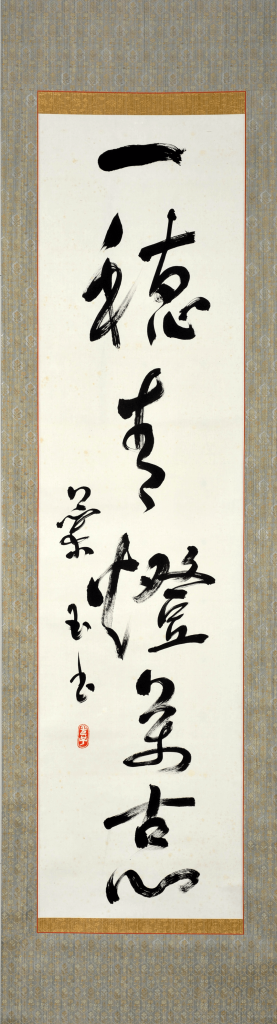 一穂青燈萬古心